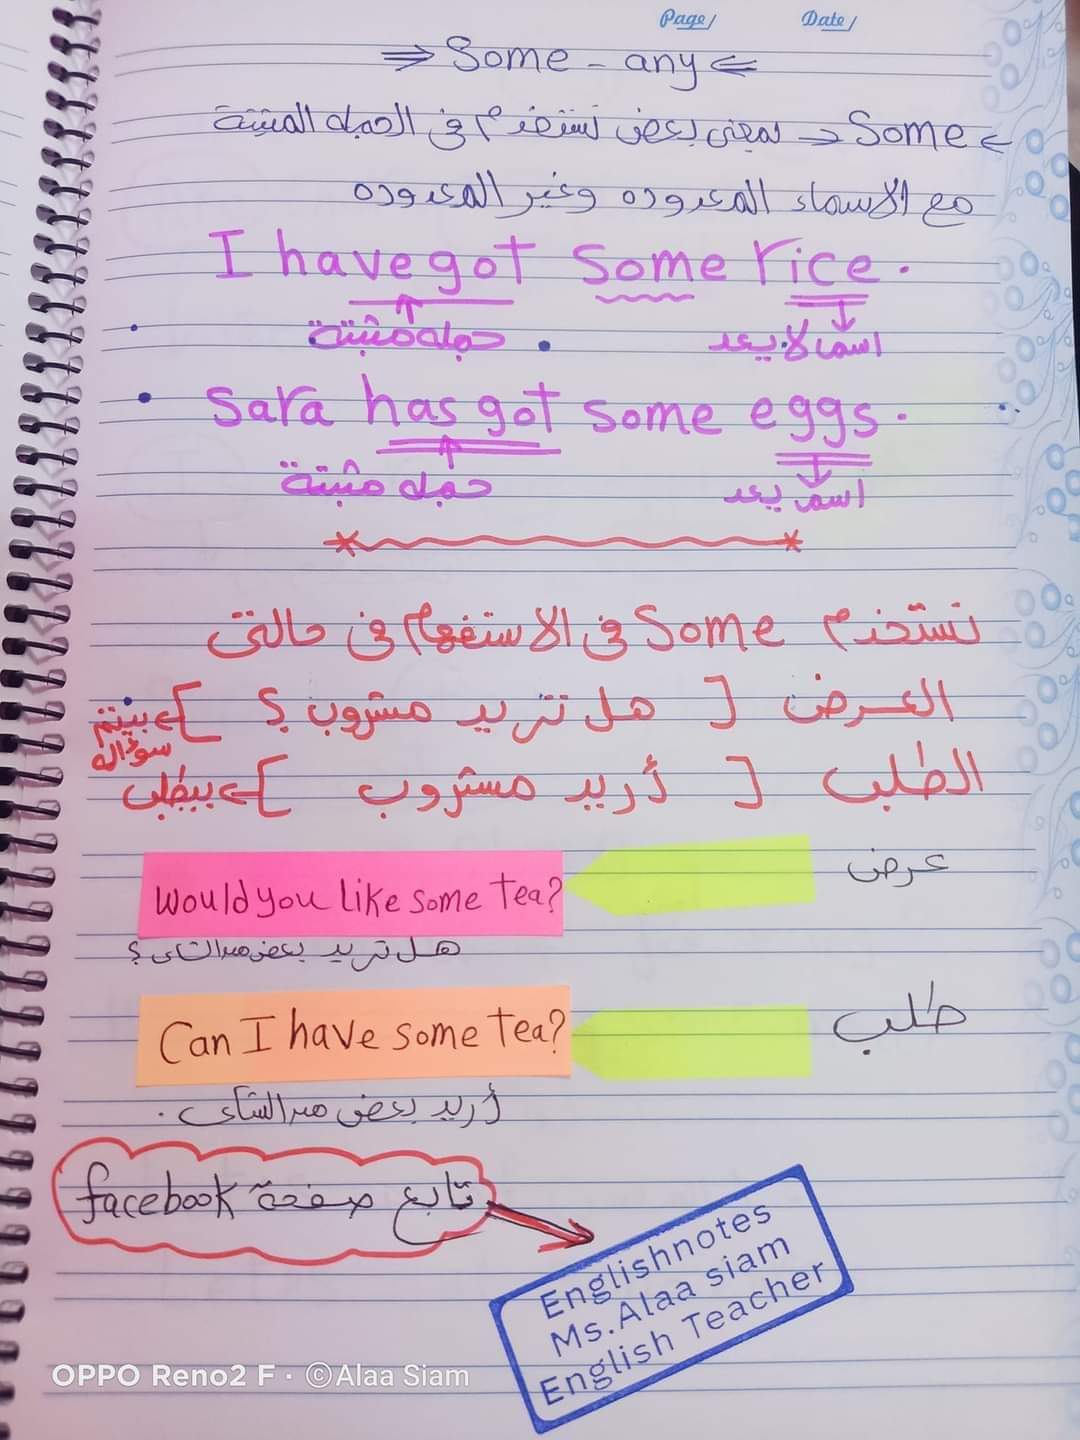 Page/ Date/
⇒ Some - any ⇐
Some → بمعنى بعض تستخدم فى الجمله المثبتة
مع الاسماء المعدوده وغير المعدوده
I have got some rice.
جمله مثبتة
اسم لا يعد
Sara has got some eggs.
جمله مثبتة
اسم يعد
نستخدم Some فى الاستفهام فى حالتى
العرض [ هل تريد مشروب ؟ ] ← بيتم سؤاله
الطلب [ أريد مشروب ] ← بيطلب
عرض
Would you like some tea?
هل تريد بعض من الشاى ؟
طلب
Can I have some tea?
أريد بعض من الشاى .
تابع صفحة facebook
Englishnotes
Ms.Alaa siam
English Teacher
OPPO Reno2 F · ©Alaa Siam